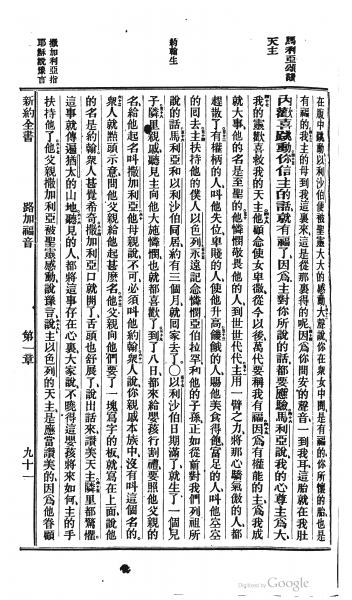 馬利亞頌讚
天主
約翰生
撒加利亞指
耶穌說豫言
在腹中跳動以利沙伯被聖靈大大的感動大聲說你在衆女中間是有福的你所懷的胎也是
有福的我主的母到我這裏來這是從那裏得的呢因為你問安的聲音一到我耳這胎就在我肚
內歡喜跳動你信主的話就有福了因為主對你所說的話都要應驗馬利亞說我的心尊主為大
我的靈歡喜救我的天主他顧念使女卑微從今以後萬代要稱我有福因為有權能的主為我成
就大事他的名是至聖的他憐憫敬畏他的人到世世代代主用一臂之力將那心驕氣傲的人都
趕散了有權柄的人叫他失位卑賤的人使他升高饑餓的人賜他美食得飽富足的人叫他空空
的回去主扶持他的僕人以色列永遠記念憐憫亞伯拉罕和他的子孫正如從前對我們列祖所
說的話馬利亞和以利沙伯同居約有三個月就回家去了〇以利沙伯日期滿了就生了一個兒
子隣里親戚聽見主向他大施憐憫也就都喜歡了到了八日都來給嬰孩行割禮要照他父親的
名給他起名叫撒加利亞他母親說不可必須叫他約翰衆人說你親戚本族中沒有叫這個名的
衆人就點頭示意問他父親給他起甚麼名他父親向他們要了一塊寫字的板就寫在上面說他
的名是約翰衆人甚覺希奇撒加利亞口就開了舌頭也舒展了說出話來讚美天主隣里都驚懼
這事就傳遍猶太的山地聽見的人都將這事存在心裏大家說不曉得這嬰孩將來如何主的手
扶持他了他父親撒加利亞被聖靈感動說豫言說主以色列的天主是應當讚美的因為他眷顧
新約全書
路加福音
第一章
九十一
Digitized by Google